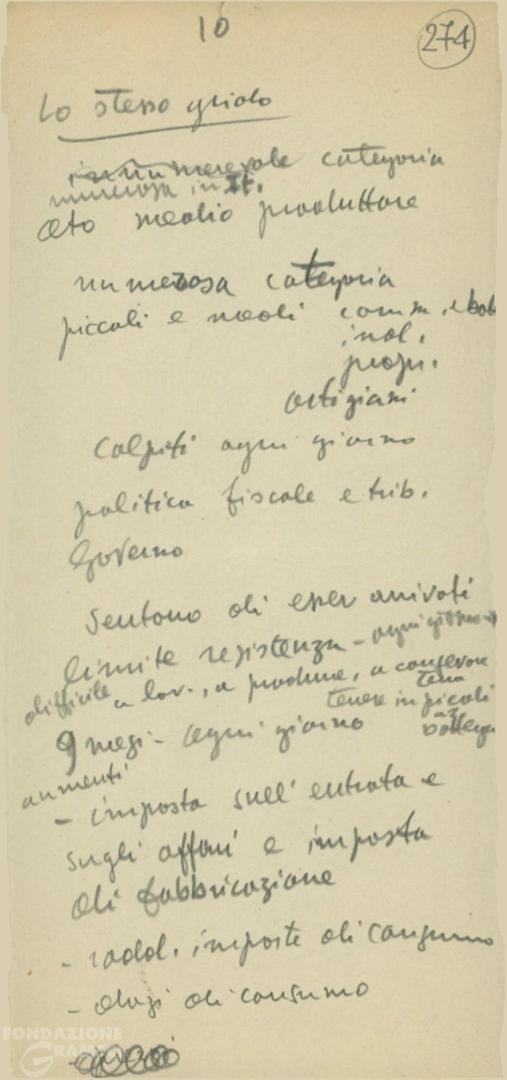 10
274
Lo stesso grido
innumerevole categoria
numerosa in It.
ceto medio produttore
numerosa categoria
piccoli e medi comm. e bott
ind.
propr.
artigiani
Colpiti ogni giorno
politica fiscale e trib.
Governo
Sentono di esser arrivati
limite resistenza - ogni giorno +
difficile a lav., a produrre, a conservare
terra
tenere in piedi
bottega
9 mesi - ogni giorno
aumenti
- imposta sull'entrata e
sugli affari e imposta
di fabbricazione
- radd. imposte di consumo
- dazi di consumo
FONDAZIONE
GRAMSCI